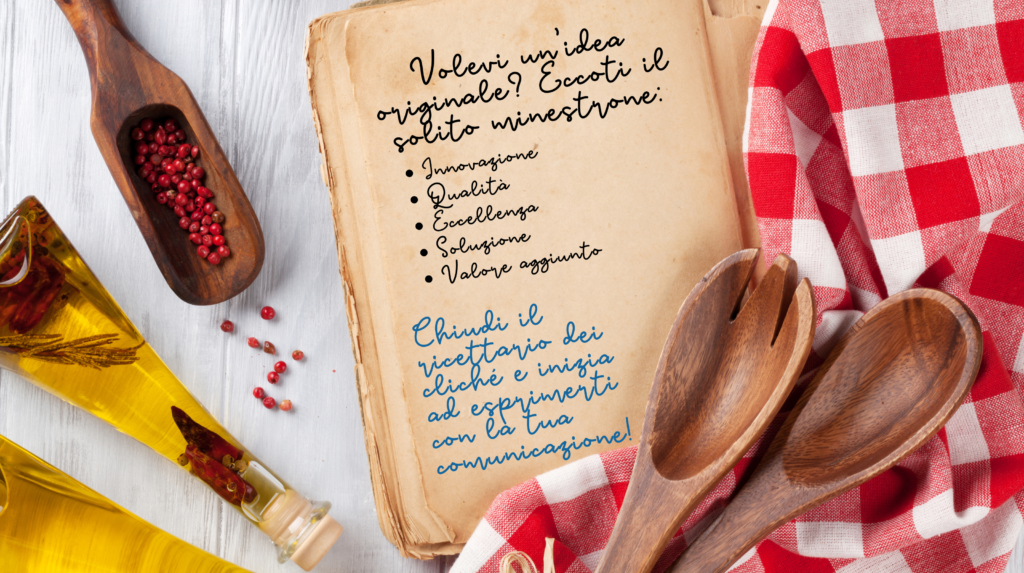 Volevi un'idea
originale? Eccoti il
solito minestrone:
• Innovazione
• Qualità
• Eccellenza
• Soluzione
• Valore aggiunto
Chiudi il
ricettario dei
cliché e inizia
ad esprimerti
con la tua
comunicazione!